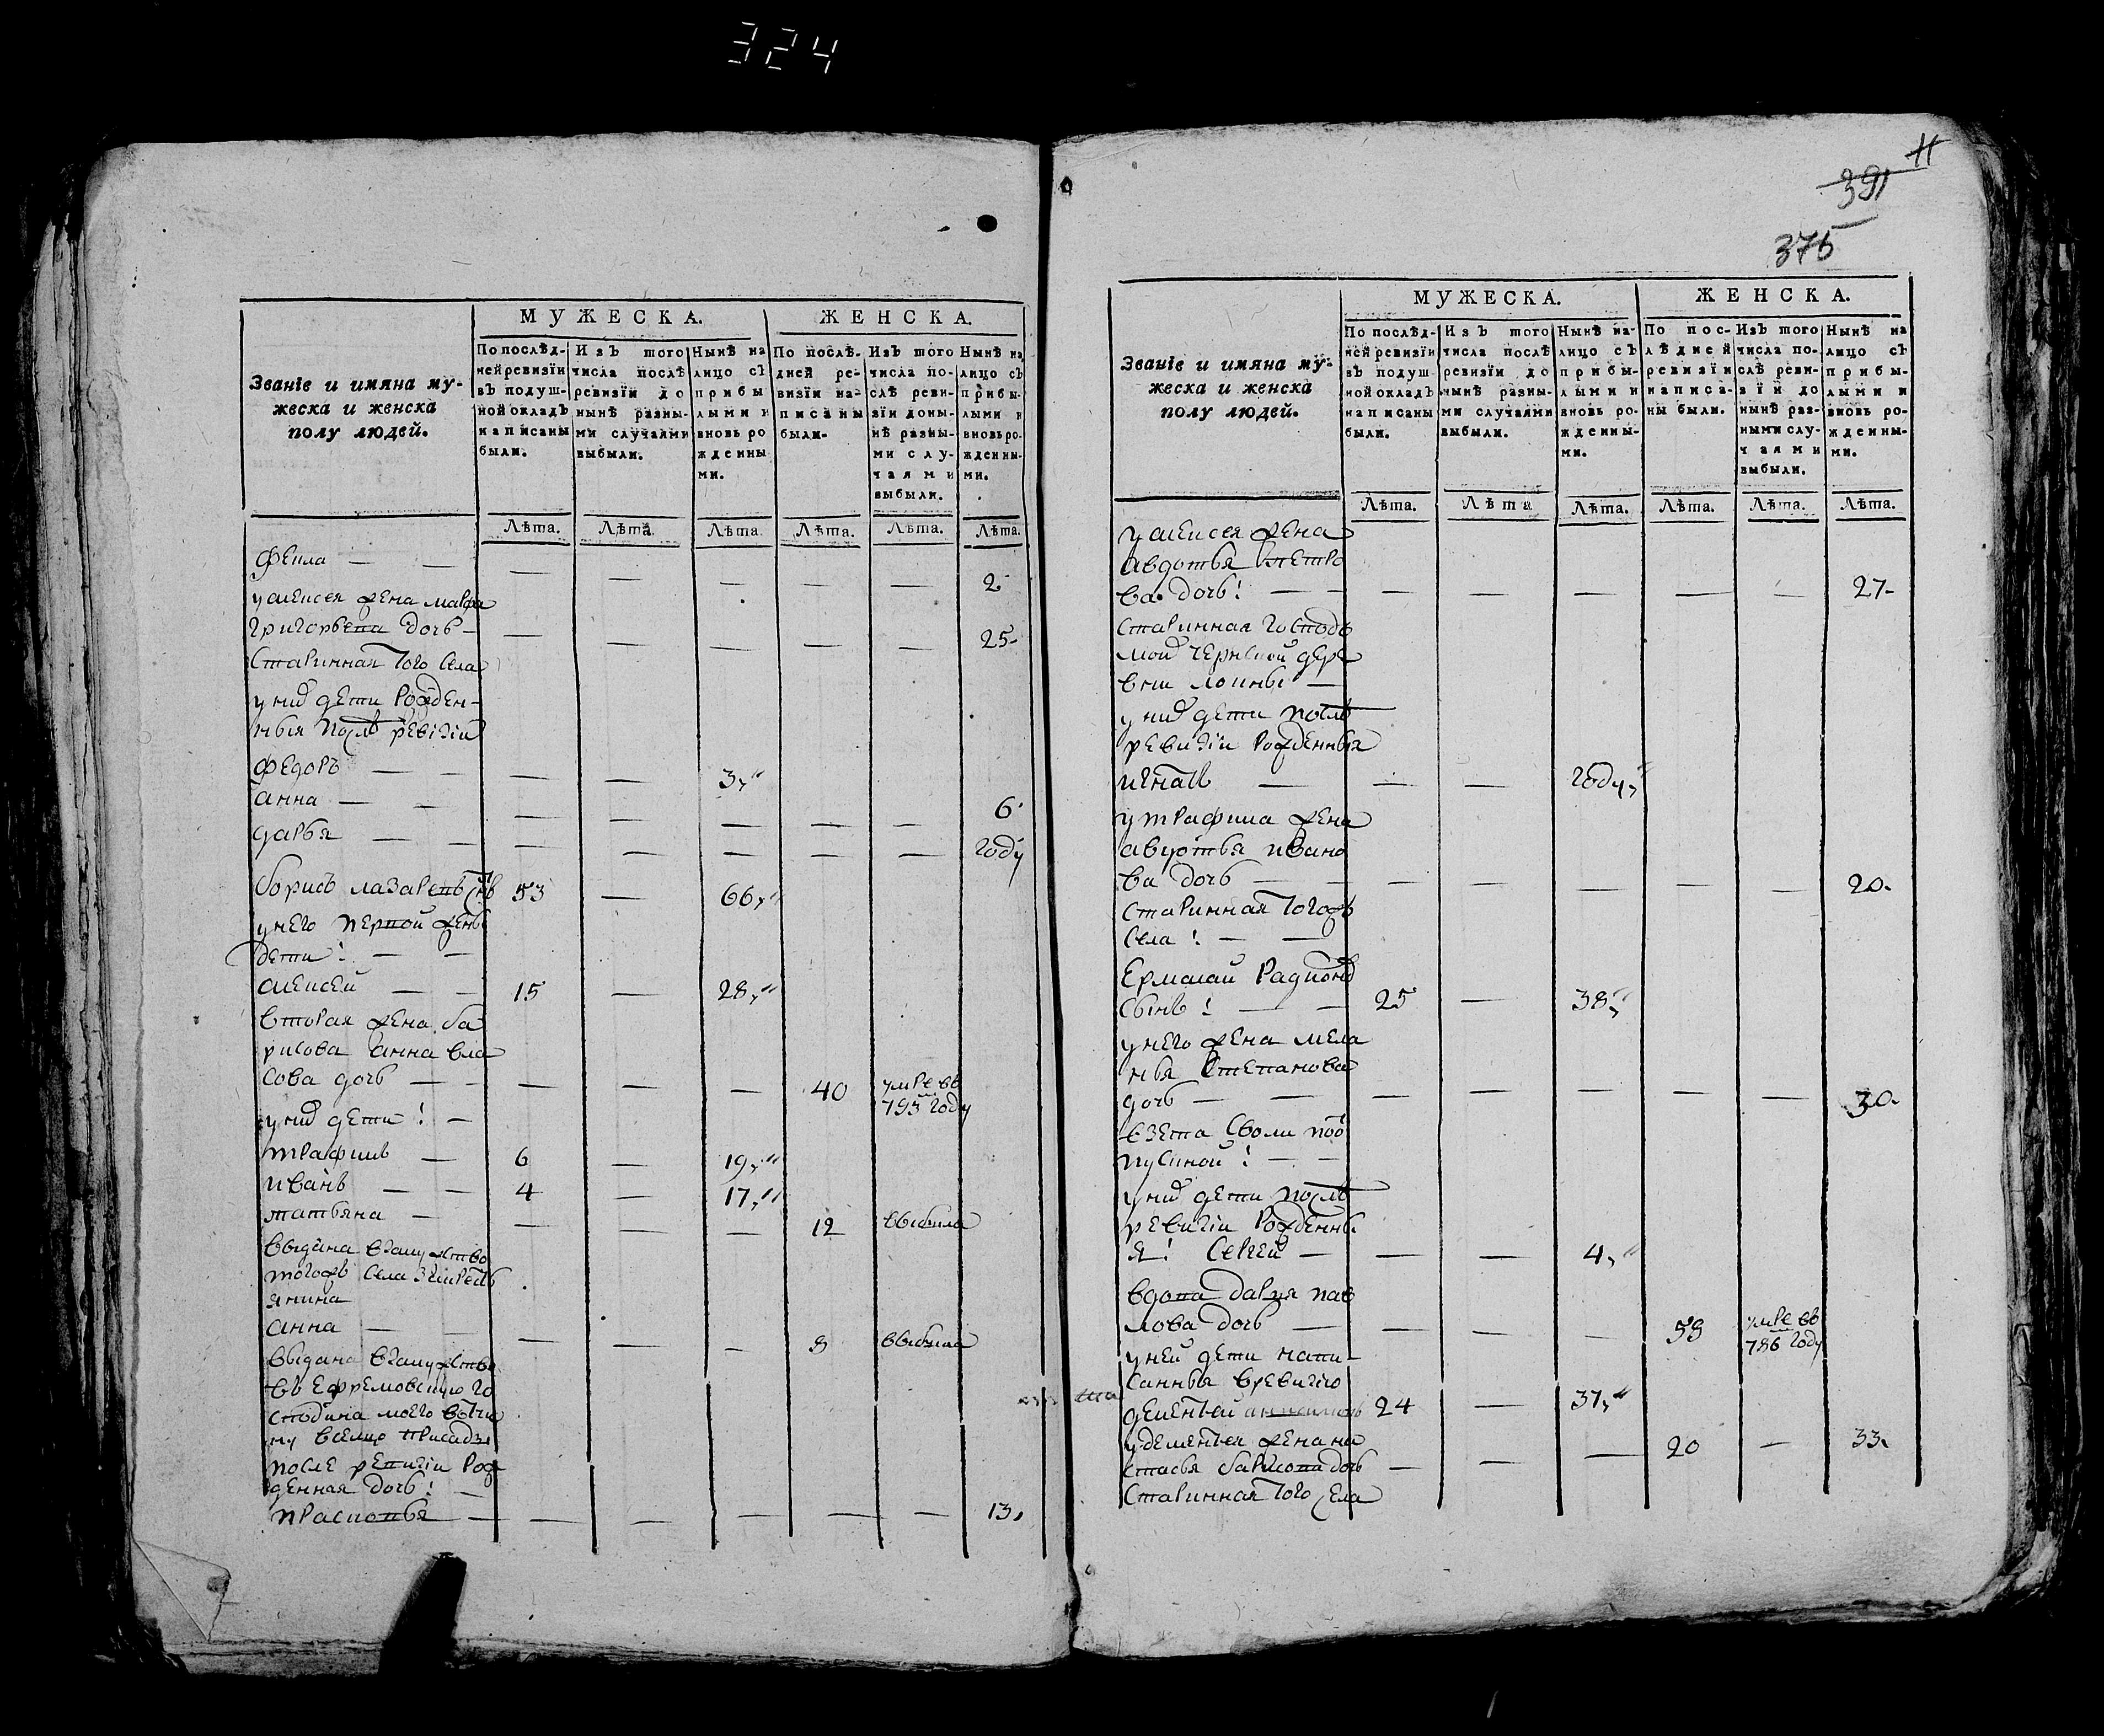 324
11
391
375
МУЖЕСКА.
ЖЕНСКА.
Званіе и имяна му-
жеска и женска
полу людей.
По послѣд-
ней ревизіи
въ подуш-
ной окладъ
написаны
были.
Изъ того
числа послѣ
ревизіи до
нынѣ разны-
ми случаями
выбыли.
Нынѣ на
лицо съ
прибы
лыми и
вновь ро
жденны
ми.
По послѣ-
дней ре-
визіи на-
писаны
были.
Изъ того
числа по-
слѣ реви-
зіи доны-
нѣ разны-
ми слу-
чаями
выбыли.
Нынѣ на
лицо съ
прибы-
лыми и
вновь ро-
жденны-
ми.
Лѣта. Лѣта. Лѣта Лѣта. Лѣта. Лѣта.
Фекла — — — — — — — 2
у алексея жена марфа
григорьева дочь — — — — — — 25
старинная того села
у них дети рожден-
ныя послѣ ревизіи
Федоръ — — — — 3
анна — — — — — — — 6
дарья — — — — — — — году
борисъ лазаревъ снъ 53 — 66
у него первой жены
дети: — —
алексей — — 15 — 28
вторая жена ба
рисова анна вла
сова дочь — — — — — 40 умре въ
793 году
у них дети: —
трафимъ — 6 — 19
иванъ — — 4 — 17
татьяна — — — — 12 выбыла
выдана взамужство
тогожъ села за крестъ
янина
анна — — — — — 8 выбыла
выдана взамужство
въ ефремовскую го
сподина моего вотчи
ну
после ревизіи рож
денная дочь: —
прасковья — — — — — — 13
МУЖЕСКА.
ЖЕНСКА.
Званіе и имяна му-
жеска и женска
полу людей.
По послѣд-
ней ревизіи
въ подуш
ной окладъ
написаны
были.
Изъ того
числа послѣ
ревизіи до
нынѣ разны-
ми случаями
выбыли.
Нынѣ на-
лицо съ
прибы-
лыми и
вновь ро-
жденны-
ми.
По пос-
лѣдней
ревизіи
написа-
ны были.
Изъ того
числа по-
слѣ реви-
зіи до
нынѣ раз-
ными слу-
чаями
выбыли.
Нынѣ на
лицо съ
прибы-
лыми и
вновь ро-
жденны-
ми.
Лѣта. Лѣта Лѣта. Лѣта. Лѣта. Лѣта.
у алексея жена
авдотья петро
ва дочь: — — — — — — — 27
старинная господи
мой дере
вни
у них дети послѣ
ревизіи рожденныя
игнатъ — — — году
у трафима жена
авдотья ивано
ва дочь — — — — — — — 20
старинная тогожъ
села: — —
Ермолай радионов
сынъ: — — 25 — 38
у него жена мела
нья степанова
дочь — — — — — — — 30
взета
у них дети послѣ
ревизіи рожденны
я: Сергей — — — 4
вдова дарья пав
лова дочь — — — — 59 умре въ
786 году
у ней дети напи-
санныя в ревизію
дементей 24 — 37
у дементья жена на
стасья барисова дочь — — — 20 — 33
старинная того села